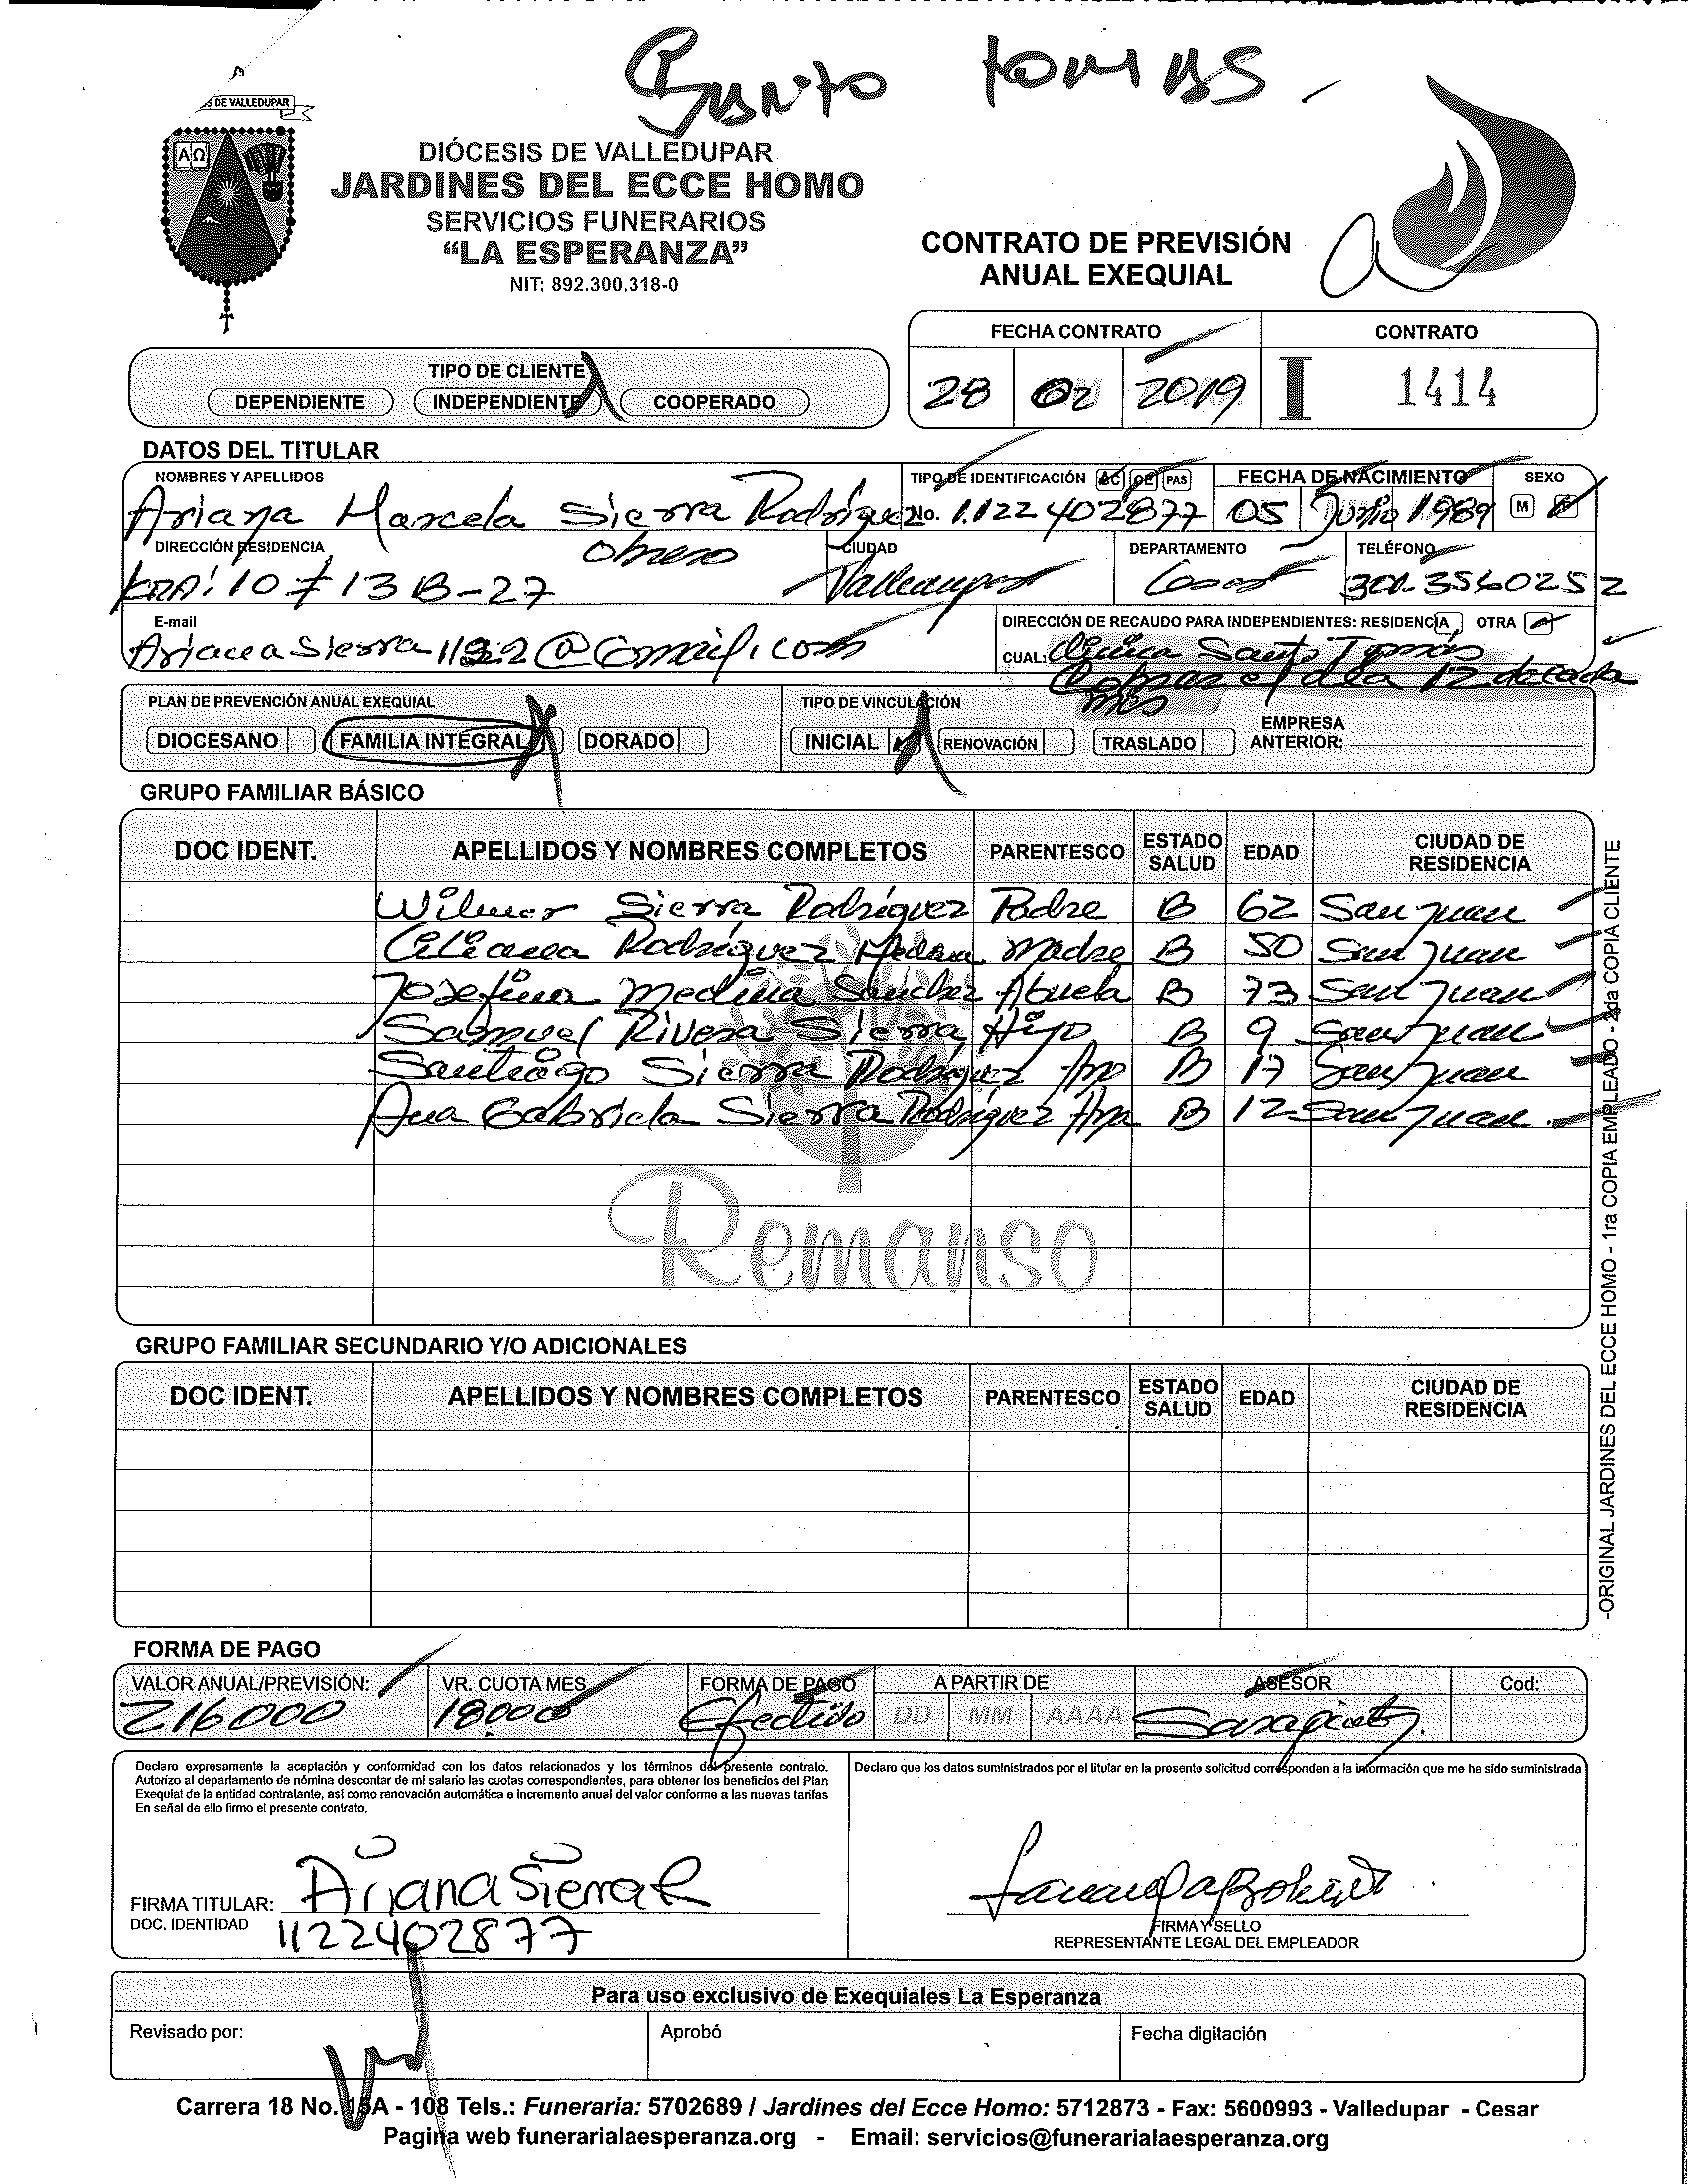 Santo tomas.
S DE VALLEDUPAR
A Ω
DIÓCESIS DE VALLEDUPAR
JARDINES DEL ECCE HOMO
SERVICIOS FUNERARIOS
“LA ESPERANZA”
NIT: 892.300.318-0
CONTRATO DE PREVISIÓN
ANUAL EXEQUIAL
FECHA CONTRATO CONTRATO
28 02 2019 I 1414
TIPO DE CLIENTE
DEPENDIENTE INDEPENDIENTE COOPERADO
DATOS DEL TITULAR
NOMBRES Y APELLIDOS TIPO DE IDENTIFICACIÓN CC CE PAS FECHA DE NACIMIENTO SEXO
Ariana Marcela Sierra Rodríguez No. 1.122402877 05 Junio 1989 M F
DIRECCIÓN RESIDENCIA obrero CIUDAD DEPARTAMENTO TELÉFONO
KRA: 10 # 13B-27 Valledupar Cesar 301-3560252
E-mail DIRECCIÓN DE RECAUDO PARA INDEPENDIENTES: RESIDENCIA OTRA
ArianaSierra1122@Gmail.com CUAL: Clínica Santo Tomás
Cobrar el día 12 de cada
mes
PLAN DE PREVENCIÓN ANUAL EXEQUIAL TIPO DE VINCULACIÓN
DIOCESANO FAMILIA INTEGRAL DORADO INICIAL RENOVACIÓN TRASLADO EMPRESA ANTERIOR:
GRUPO FAMILIAR BÁSICO
DOC IDENT. APELLIDOS Y NOMBRES COMPLETOS PARENTESCO ESTADO SALUD EDAD CIUDAD DE RESIDENCIA
Wilmer Sierra Rodríguez Padre B 62 San Juan
Liliana Rodríguez Medina Madre B 50 San Juan
Josefina Medina Sánchez Abuela B 73 San Juan
Samuel Rivera Sierra Hijo B 9 San Juan
Santiago Sierra Rodríguez Hno B 17 San Juan
Ana Gabriela Sierra Rodríguez Hna B 12 San Juan
Remanso
GRUPO FAMILIAR SECUNDARIO Y/O ADICIONALES
DOC IDENT. APELLIDOS Y NOMBRES COMPLETOS PARENTESCO ESTADO SALUD EDAD CIUDAD DE RESIDENCIA
-ORIGINAL JARDINES DEL ECCE HOMO - 1ra COPIA EMPLEADO - 2da COPIA CLIENTE
FORMA DE PAGO
VALOR ANUAL/PREVISIÓN: VR. CUOTA MES FORMA DE PAGO A PARTIR DE ASESOR Cod:
216000 18000 Efectivo DD MM AAAA
Declaro expresamente la aceptación y conformidad con los datos relacionados y los términos del presente contrato.
Autorizo al departamento de nómina descontar de mi salario las cuotas correspondientes, para obtener los beneficios del Plan
Exequial de la entidad contratante, así como renovación automática e incremento anual del valor conforme a las nuevas tarifas
En señal de ello firmo el presente contrato.
Declaro que los datos suministrados por el titular en la presente solicitud corresponden a la información que me ha sido suministrada
FIRMA TITULAR: Ariana Sierra R
DOC. IDENTIDAD 1122402877
FIRMA Y SELLO
REPRESENTANTE LEGAL DEL EMPLEADOR
Para uso exclusivo de Exequiales La Esperanza
Revisado por: Aprobó Fecha digitación
Carrera 18 No. 13A - 108 Tels.: Funeraria: 5702689 / Jardines del Ecce Homo: 5712873 - Fax: 5600993 - Valledupar - Cesar
Pagina web funerarialaesperanza.org - Email: servicios@funerarialaesperanza.org